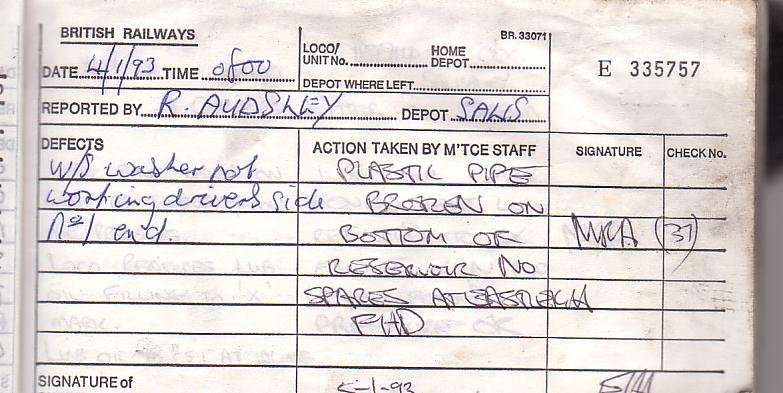 BRITISH RAILWAYS
BR. 33071
LOCO/ UNIT No. HOME DEPOT
E 335757
DATE 4/1/93 TIME 0800
DEPOT WHERE LEFT
REPORTED BY R. AUDSLEY DEPOT SALIS
DEFECTS ACTION TAKEN BY M'TCE STAFF SIGNATURE CHECK No.
W/S washer not PLASTIC PIPE
working drivers side BROKEN ON
No1 end. BOTTOM OF (37)
RESERVOIR NO
SPARES AT EASTLEIGH
FHD
SIGNATURE of 5-1-93